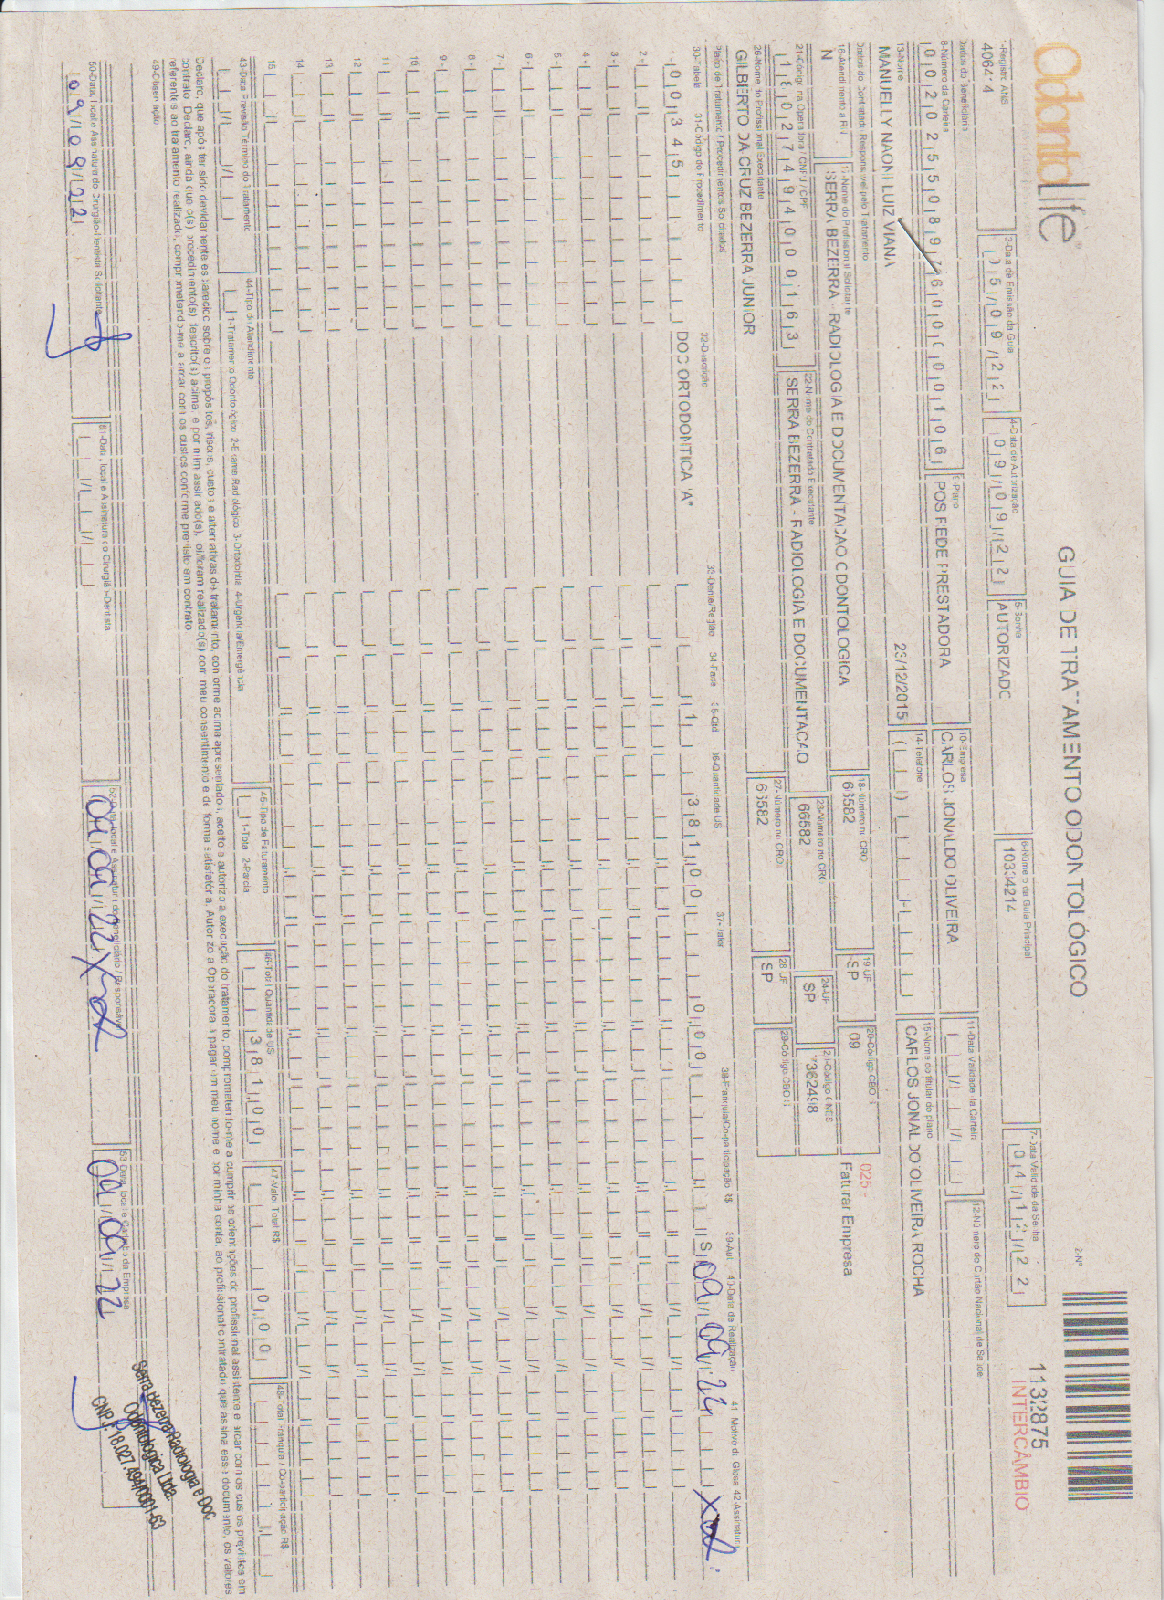 OdontoLife
GUIA DE TRATAMENTO ODONTOLÓGICO
2-Nº
1132875
INTERCÂMBIO
1-Registro ANS
406414
3-Data de Emissão da Guia
4-Data de Autorização
09/09/22
5-Senha
AUTORIZADO
6-Número da Guia Principal
10334214
7-Data Validade da Senha
04/12/22
Dados do Beneficiário
8-Número da Carteira
9-Plano
POS REDE PRESTADORA
10-Empresa
CARLOS JONALDO OLIVEIRA
11-Data Validade da Carteira
12-Número do Cartão Nacional de Saúde
13-Nome
MANUELLY NAONI LUIZ VIANA
23/12/2015
14-Telefone
15-Nome do titular do plano
CARLOS JONALDO OLIVEIRA ROCHA
Dados do Contratado Responsável pelo Tratamento
16-Atendimento a RN
N
17-Nome do Profissional Solicitante
SERRA BEZERRA RADIOLOGIA E DOCUMENTACAO ODONTOLOGICA
18-Número no CRO
66582
19-UF
SP
20-Código CBO S
09
025 -
Faturar Empresa
21-Código na Operadora / CNPJ / CPF
18027494000163
22-Nome do Contratado Executante
SERRA BEZERRA - RADIOLOGIA E DOCUMENTACAO
23-Número no CRO
66582
24-UF
SP
25-Código CNES
7362498
26-Nome do Profissional Executante
GILBERTO DA CRUZ BEZERRA JUNIOR
27-Número no CRO
66582
28-UF
SP
29-Código CBO S
Plano de Tratamento / Procedimentos Solicitados
30-Tabela
31-Código do Procedimento
32-Descrição
33-Dente/Região
34-Face
35-Qtd
36-Quantidade US
37-Valor
38-Franquia/Co-participação R$
39-Aut
40-Data da Realização
41-Motivo da Glosa
42-Assinatura
00345
DOC ORTODONTICA "A"
1
381,00
0,00
S
09/09/22
2-
3-
4-
5-
6-
7-
8-
9-
10
11
12
13
14
15
43-Data Prevista Término do Tratamento
44-Tipo de Atendimento
1-Tratamento Odontológico 2-Exame Radiológico 3-Ortodontia 4-Urgência/Emergência
45-Tipo de Faturamento
1-Total 2-Parcial
46-Total Quantidade US
381,00
47-Valor Total R$
0,00
48-Total Franquia / Co-participação R$
Declaro que após ter sido devidamente esclarecido sobre os propósitos, riscos, custos e alternativas de tratamento, conforme acima apresentados, aceito e autorizo a execução do tratamento, comprometendo-me a cumprir as orientações do profissional assistente e arcar com os custos previstos em
contrato. Declaro, ainda que o(s) procedimento(s) descrito(s) acima, e por mim assinado(s), foi/foram realizado(s) com meu consentimento e de forma satisfatória. Autorizo a Operadora a pagar em meu nome e por minha conta, ao profissional contratado que assina esse documento, os valores
referentes ao tratamento realizado, comprometendo-me a arcar com os custos conforme previsto em contrato
49-Observação
50-Data, local e Assinatura do Cirurgião-Dentista Solicitante
09/09/22
51-Data, local e Assinatura do Cirurgião-Dentista
52-Data, local e Assinatura do Beneficiário / Responsável
09/09/22
53-Data, local e Carimbo da Empresa
09/09/22
Serra Bezerra Radiologia e Doc.
Odontológica Ltda.
CNPJ: 18.027.494/0001-63